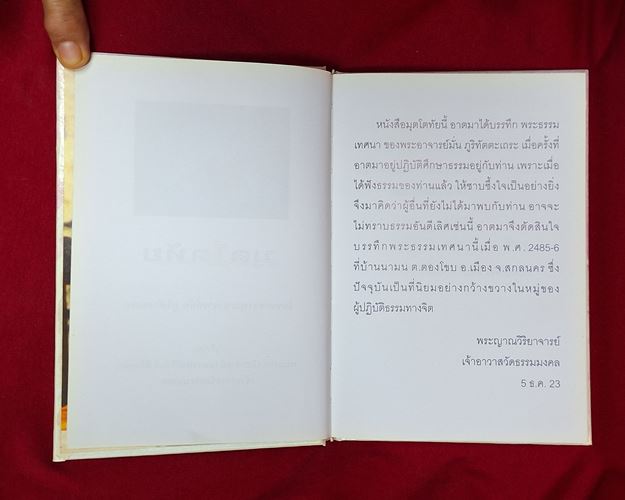 หนังสือมุตโตทัยนี้ อาตมาได้บรรทึก พระธรรม
เทศนา ของพระอาจารย์มั่น ภูริทัตตะเถระ เมื่อครั้งที่
อาตมาอยู่ปฏิบัติศึกษาธรรมอยู่กับท่าน เพราะเมื่อ
ได้ฟังธรรมของท่านแล้ว ให้ซาบซึ้งใจเป็นอย่างยิ่ง
จึงมาคิดว่าผู้อื่นที่ยังไม่ได้มาพบกับท่าน อาจจะ
ไม่ทราบธรรมอันดีเลิศเช่นนี้ อาตมาจึงตัดสินใจ
บรรทึกพระธรรมเทศนานี้เมื่อ พ.ศ. 2485-6
ที่บ้านนามน ต.ตองโขบ อ.เมือง จ.สกลนคร ซึ่ง
ปัจจุบันเป็นที่นิยมอย่างกว้างขวางในหมู่ของ
ผู้ปฏิบัติธรรมทางจิต
พระญาณวิริยาจารย์
เจ้าอาวาสวัดธรรมมงคล
5 ธ.ค. 23